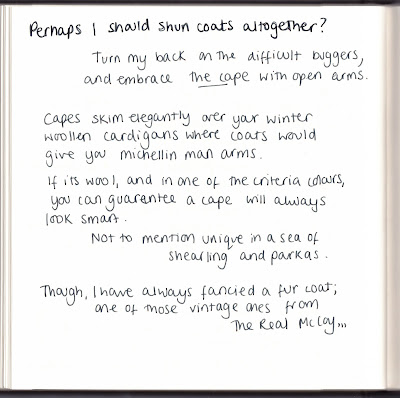 Perhaps I should shun coats altogether?
Turn my back on the difficult buggers,
and embrace the cape with open arms.
Capes skim elegantly over your winter
woollen cardigans where coats would
give you michellin man arms.
If its wool, and in one of the criteria colours,
you can guarantee a cape will always
look smart.
Not to mention unique in a sea of
shearling and parkas.
Though, I have always fancied a fur coat;
one of those vintage ones from
The Real McCoy...